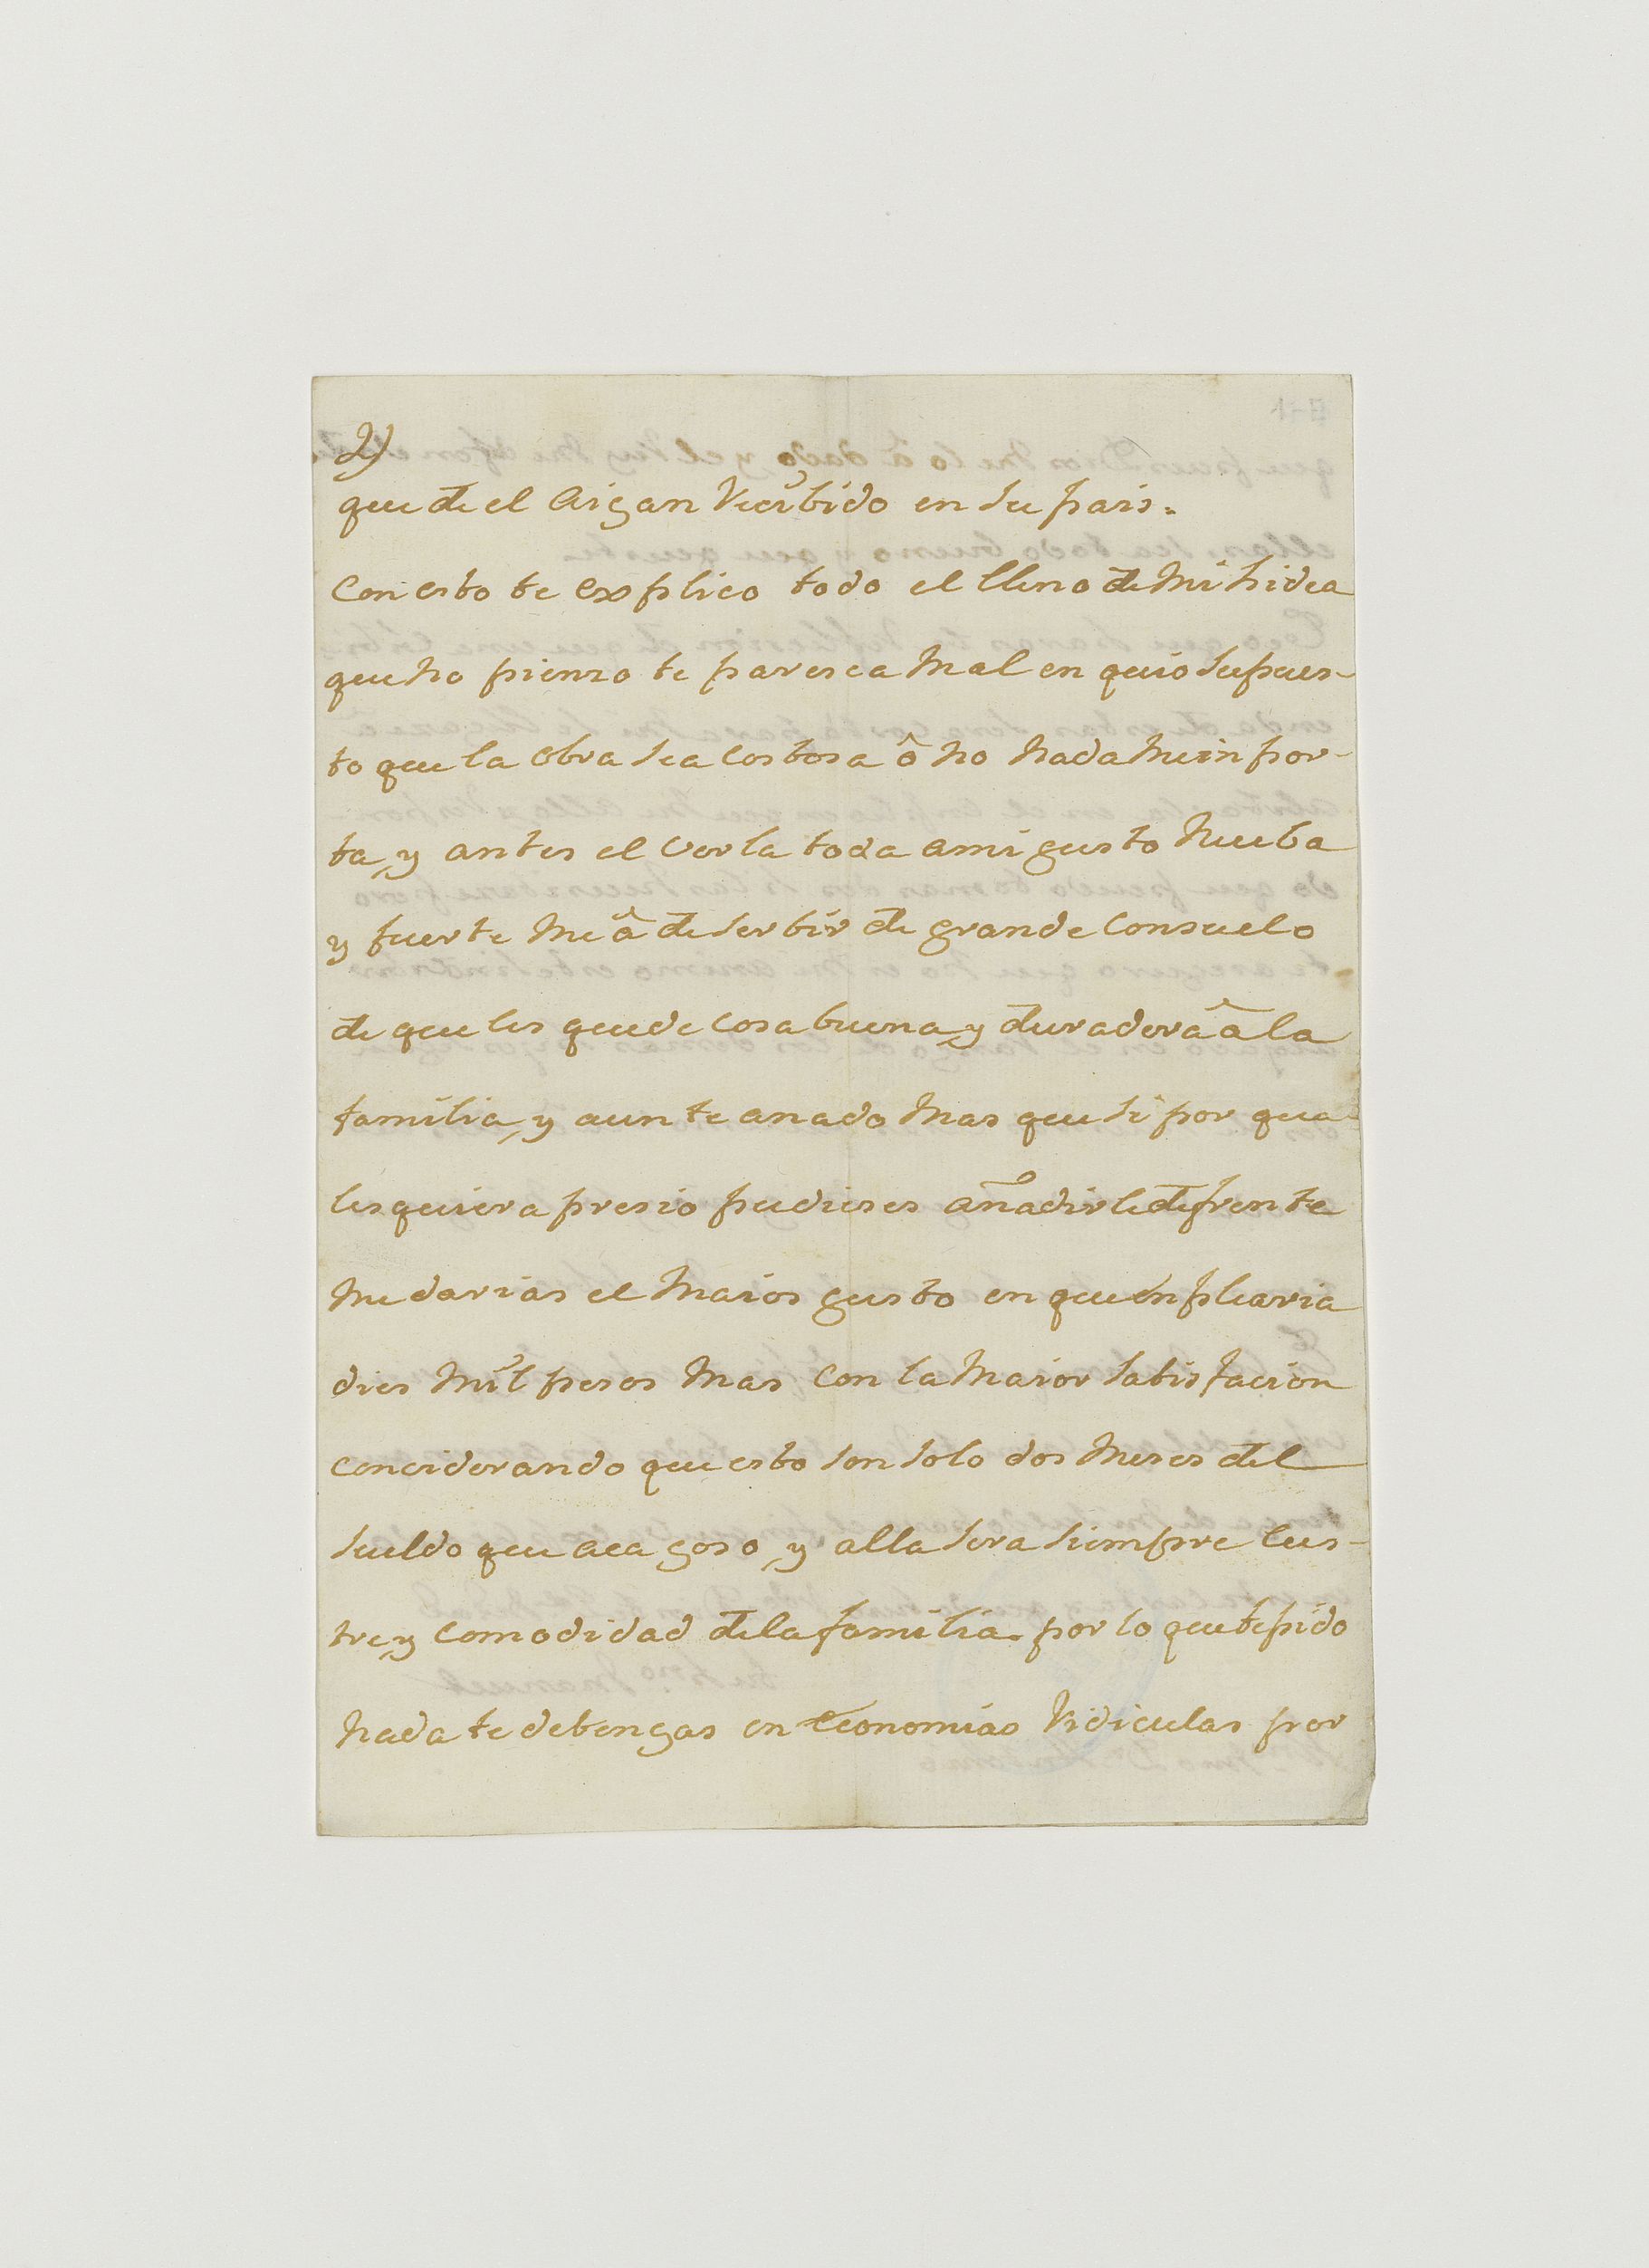 2)
que de el aigan Recibido en su pais.
Con esto te explico todo el lleno de mi hidea
que no pienzo te paresca mal en quio supues-
to que la obra sea costosa ô no nada me inpor-
ta, y antes el verla toda a mi gusto nueba
y fuerte me â de serbir de grande consuelo
de que les quede cosa buena, y duradera â la
familia, y aun te anado mas que si por qua-
lesquiera presio pudieses añadirle de frente
me darias el maior gusto en que enplearia
dies mil pesos mas con la maior satisfacion
conciderando que esto son solo dos meses del
sueldo que aca goso, y alla sera siempre lus-
tre, y comodidad de la familia. por lo que te pido
nada te detengas en economias Ridiculas por